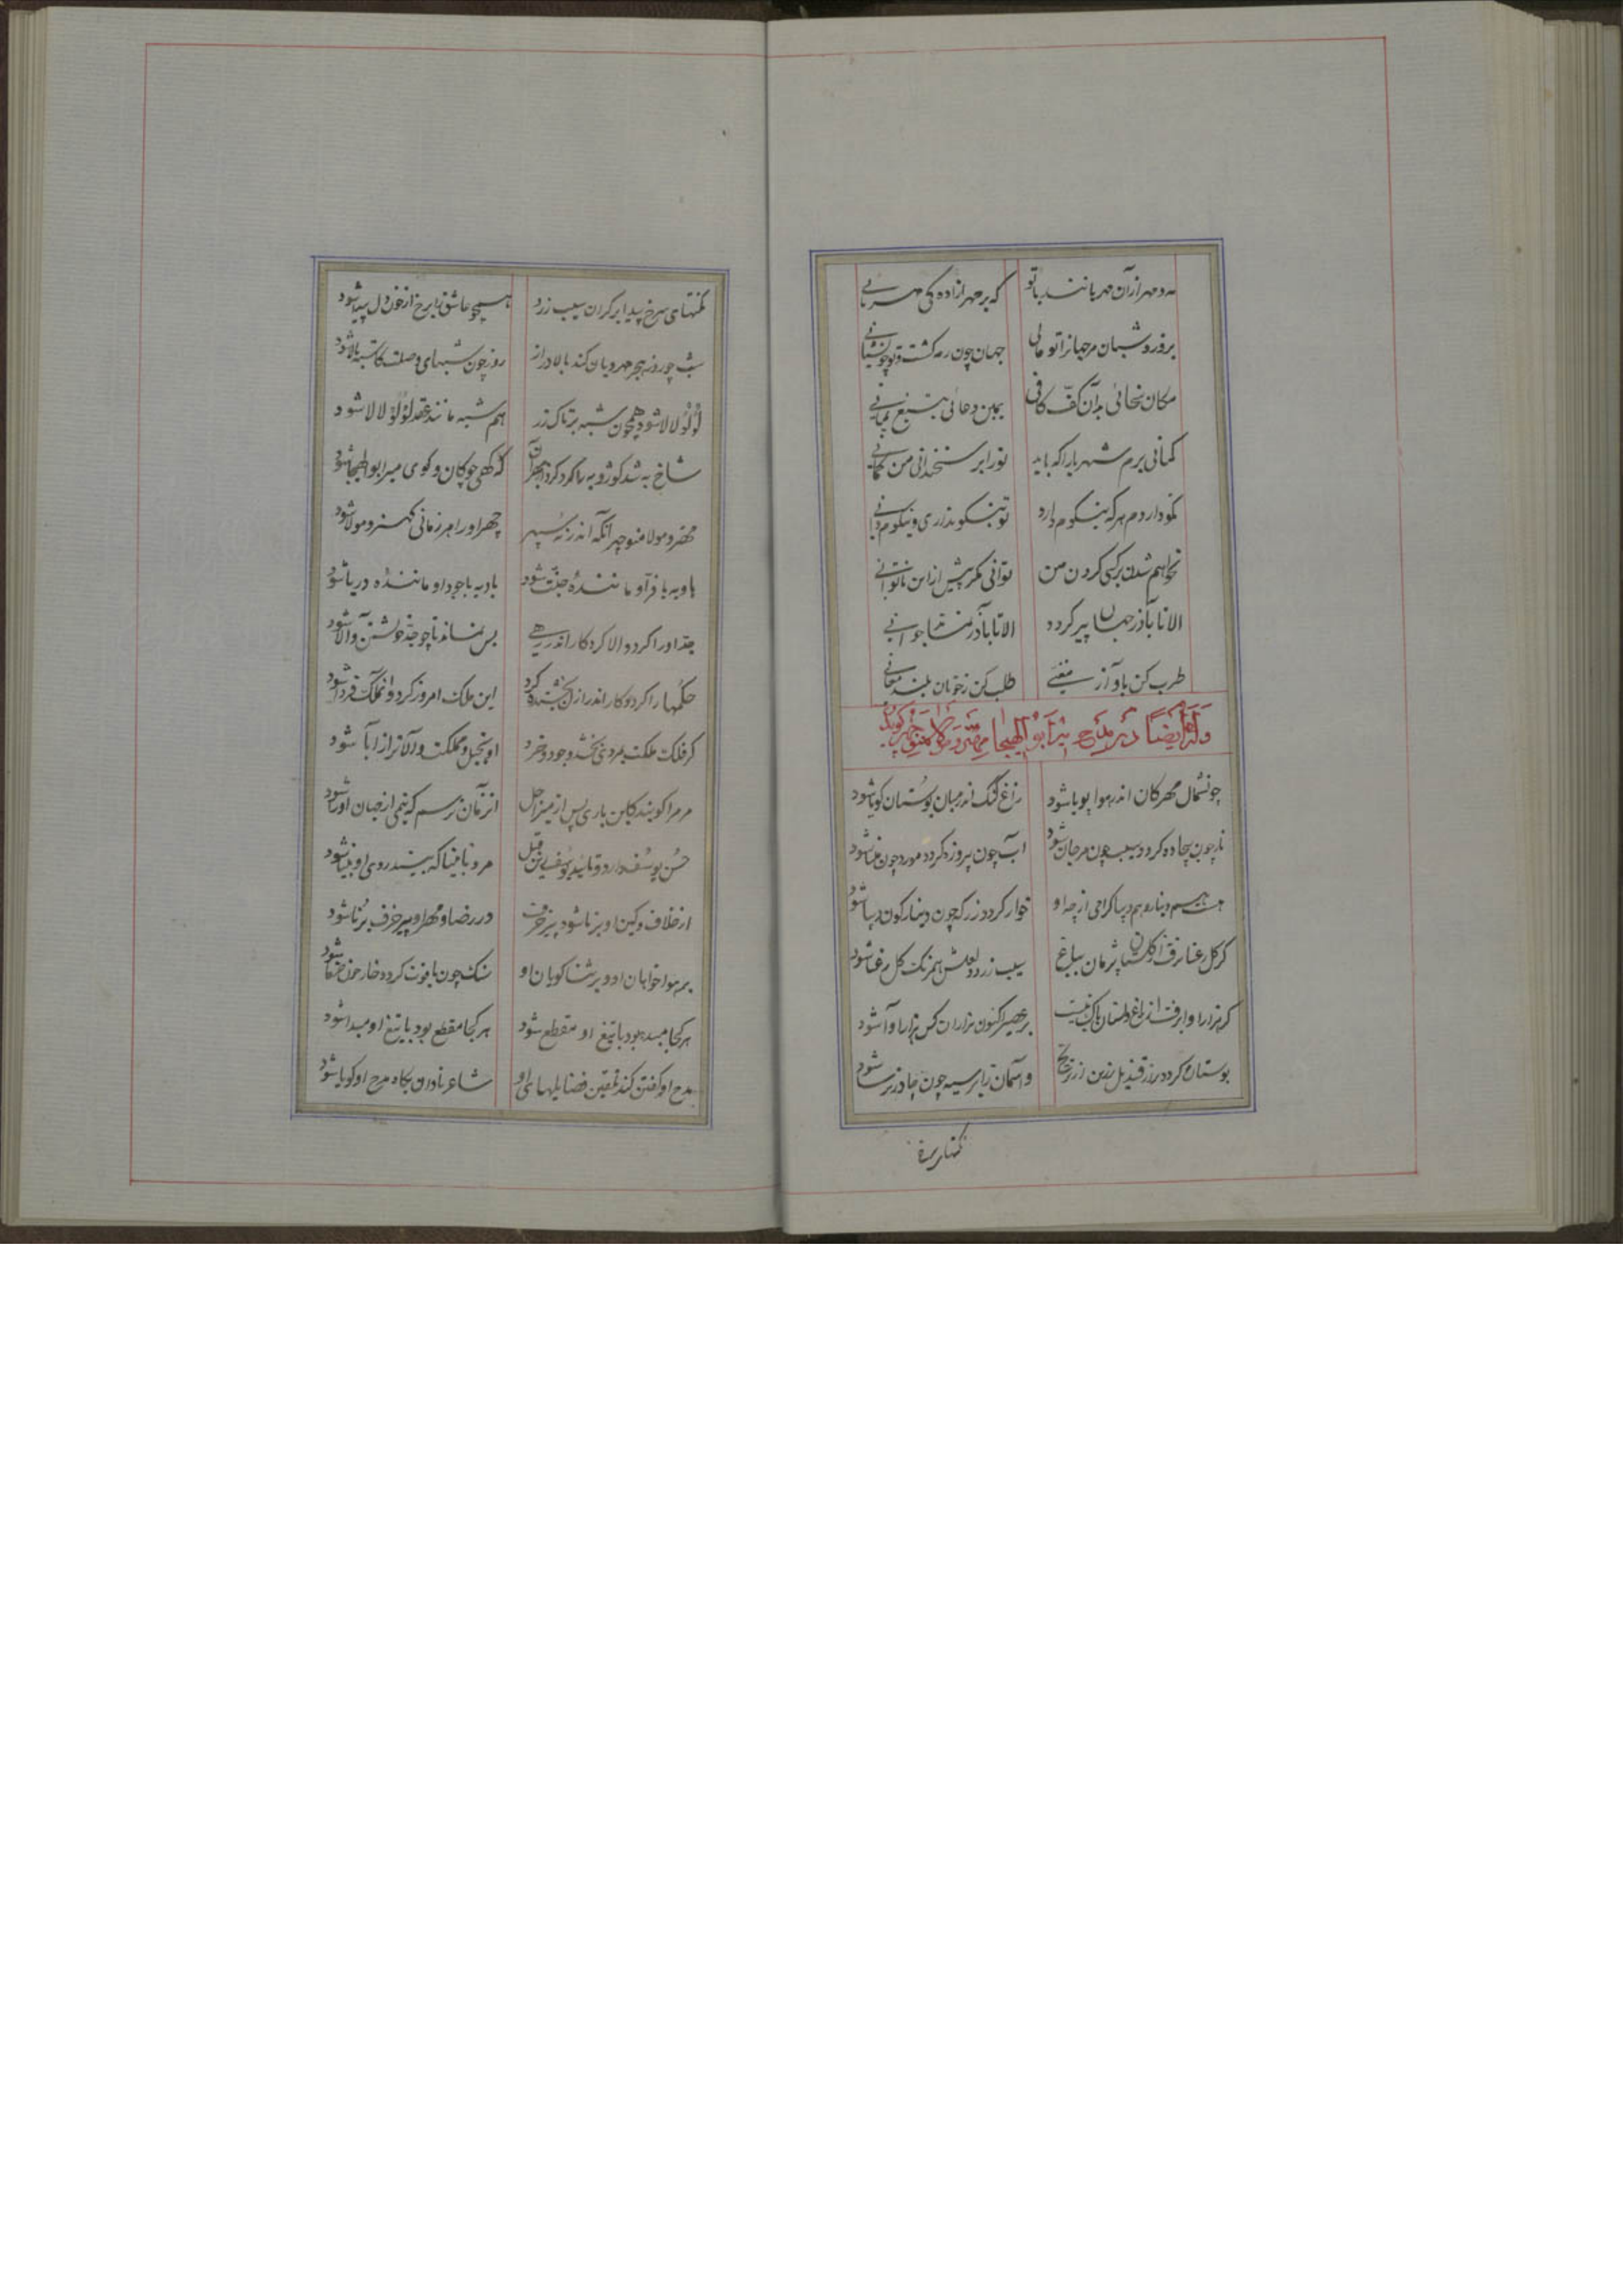 مه و مهر از آن مهربانند با تو که بر مهر آزاده کی مهربانی
بروز و شبان مر جهانرا تو مالی جهان چون رمه گشت و تو چون شبانی
مکان سخائی بدان کفّ کافی یمین دعائی بتیغ یمانی
کمانی برم شهریارا که باید تو را بر سخندانی من کمانی
نکو دارد م هر که نیکوم دارد تو نیکو نداری و نیکوم دانی
نخواهم شدن بر کسی کردن من توانی مکر پیش از این ناتوانی
الا تا بآذر جهان پیر کردد الا تا بآذر
طرب کن باواز طلب کن ز خوبان
وله ایضاً در مدح میر ابو الهیجا مهتر و مولا منوچهر کوید
چونشمال مهرکان اندر هوا پویا شود زاغ گنگ اندر میان بوستان کویا شود
نار چون بیجاده کردد سیب چون مرجان شود آب چون پیروزه کردد مورد چون مینا شود
هست سیم و دینار و هم دیبا کرامی از چه او خوار کردد زر که چون دینار کون دیبا شود
کر کل رعنا برفت از کلستان بباغ سیب زرد و لعلش همرنک کل رعنا شود
کر هزار آوا برفت از باغ و بستان باک نیست بر عصیر اکنون هزاران کس هزار آوا شود
بوستان کردد پر از قندیل زرین از ترنج و آسمان از ابر سیه چون چادر ترسا شود
نکتهای سرخ پیدا بر کران سیب زرد همچو عاشق را برخ از خون دل پیدا شود
شب چو روز هجر مهرویان کند بالا دراز روز چون شبهای وصلت کاسته بالا شود
لؤلؤ لالا شود همچون شبه بر تاک رز هم شبه مانند عقد لؤلؤ لالا شود
شاخ به شد کوژ و به ماکرد کرد که کهی چوکان و کوی میر ابوالهیجا شود
مهتر و مولا منوچهر آنکه اندر نه سپهر چهر او را هر زمانی کهتر و مولا شود
هاویه با فر او مانندۀ جنّت شود بادیه با جود او مانندۀ دریا شود
جدّ او را کرد والا کردکار اندر رهی بس نماند تا چو جدّ خویشتن والا شود
حکمها را کردکار اندر ازل بخشنده کرد این ملک امروز کرد وان ملک فردا شود
کر فلک ملکت بمردی بخشد وجود و خرد او بخیل و مملکت والاتر از آبا شود
مر مرا کویند کاین باری پس از میر اجل از زمان ترسم که نیمی از جهان او را شود
حسن یوسف دارد و تائید یوسف زین قبل مرد نابینا که بیند روی او بینا شود
از خلاف و کین او برنا شود پیر خرف در رضا و مهر او پیر خرف برنا شود
بر هوا خواهان او و بر ثناکویان او سنک چون یاقوت کردد خار چون خرما شود
هر کجا مبدء بود با تیغ او مقطع شود هر کجا مقطع بود با تیغ او مبدا شود
مدح او کفتن کند تلقین فضایلهای او شاعر نادان بکاه مدح او کویا شود